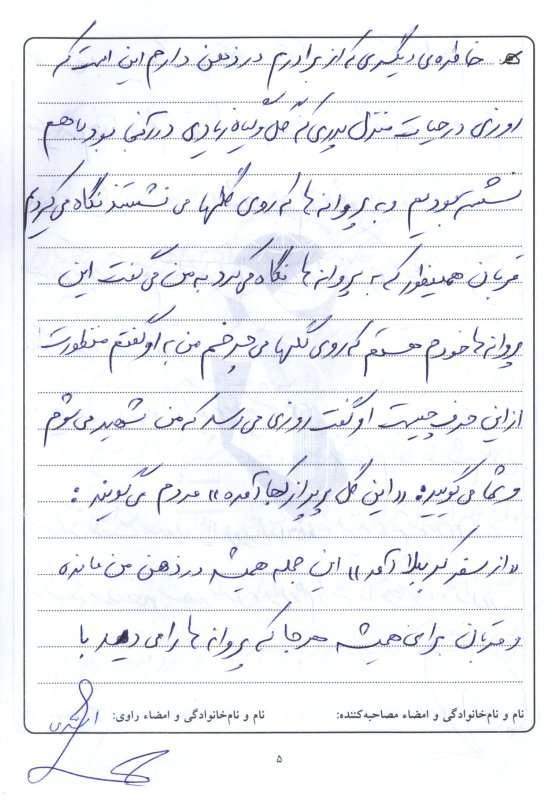 خاطره‌ی دیگری که از برادرم در ذهن دارم این است که
روزی در حیات منزل پدری که گل و گیاه زیادی در آن بود با هم
نشسته بودیم و به پروانه ها که روی گلها می نشستند نگاه می کردیم
قربان همینطور که به پروانه ها نگاه می کرد به من می گفت این
پروانه ها خودم هستم که روی گلها می چرخم من به او گفتم منظورت
از این حرف چیست او گفت روزی می رسد که من شهید می شوم
و شما می گویید: «این گل پرپر از کجا آمده» مردم می گویند:
«از سفر کربلا آمد» این جمله همیشه در ذهن من مانده
و قربان برای همیشه هر جا که پروانه ها را می دید با
نام و نام‌خانوادگی و امضاء مصاحبه‌کننده:
نام و نام‌خانوادگی و امضاء راوی:
۵